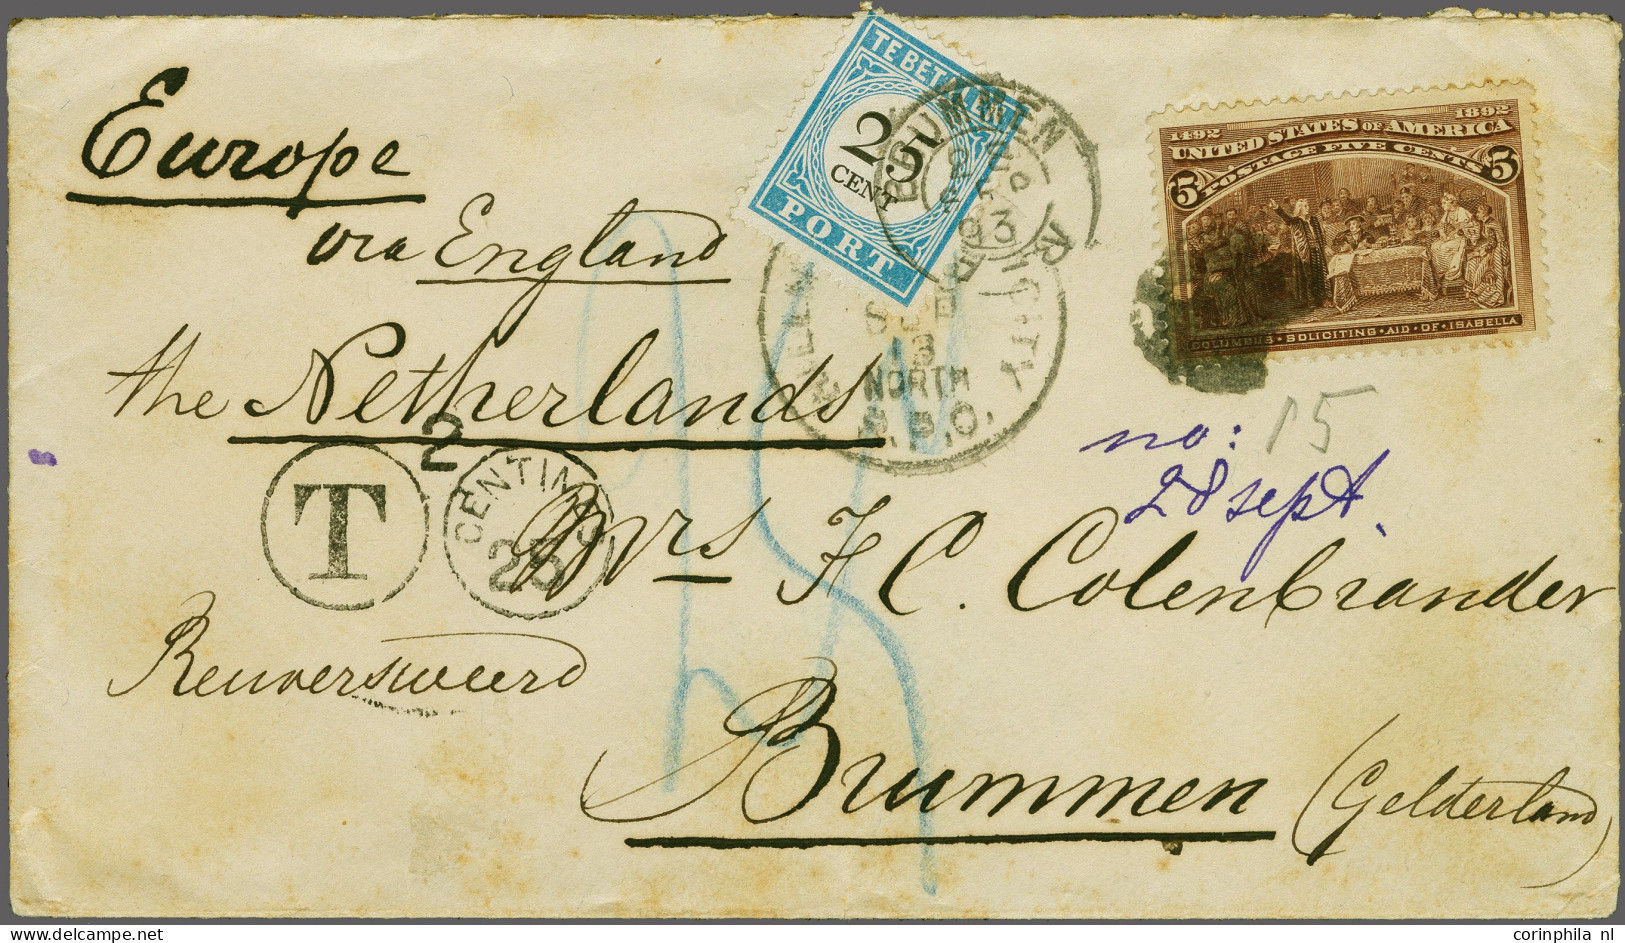 Europe
via England
the Netherlands
Mrs F. C. Colenbrander
Reuversweerd
Brummen (Gelderland)
no: 15
28 sept.
TE BETALEN
2 5
CENT
PORT
BRUMMEN
SEP
18
NORTH
P.P.O.
CITY
T
2
CENTIMES
25
25
1492 1892
UNITED STATES OF AMERICA
POSTAGE FIVE CENTS
5 5
COLUMBUS · SOLICITING · AID · OF · ISABELLA
corinphila nl